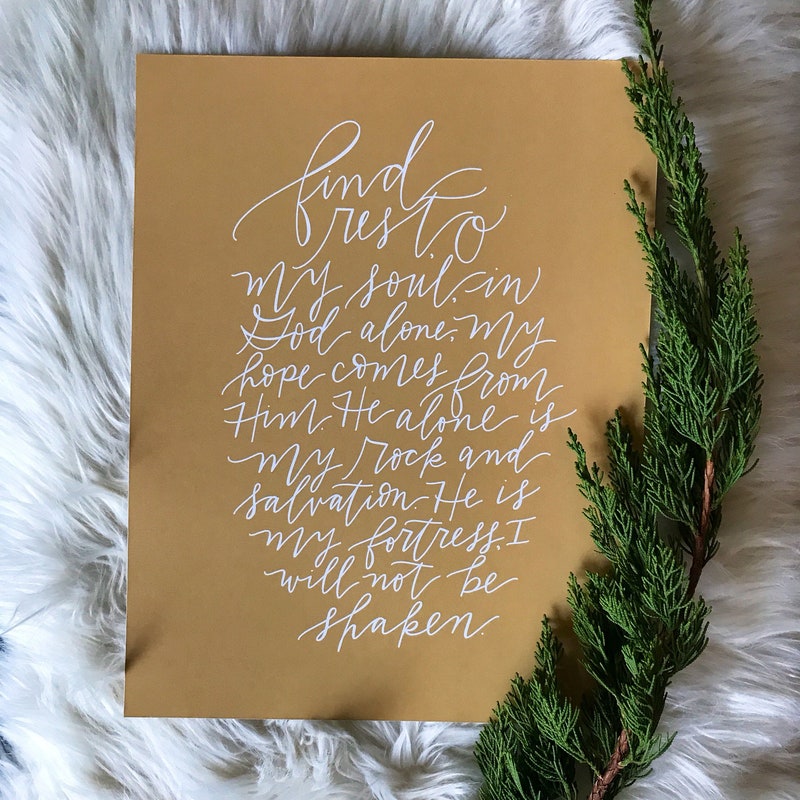 find
rest, O
my soul, in
God alone. My
hope comes from
Him. He alone is
my rock and
salvation. He is
my fortress, I
will not be
shaken.